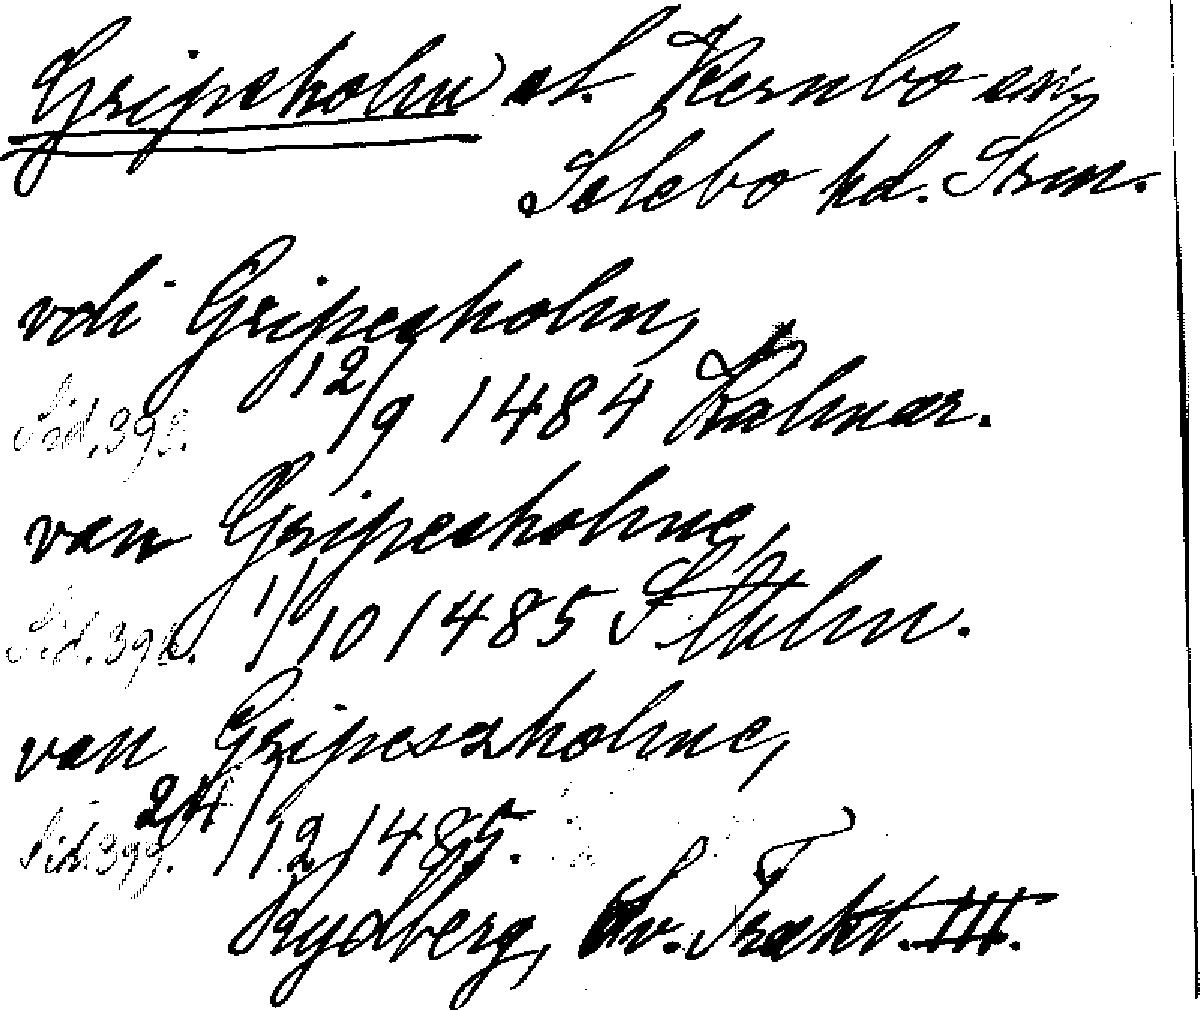 Gripsholm sl. Kernbo sn,
Selebo hd. Srm.
vdi Gripesholm,
12/9 1484 Kalmar.
Sid. 398.
van Gripesholme,
1/10 1485 Sthlm.
Sid. 398.
van Gripeszholme,
24/12 1485.
Sid. 399.
Rydberg, Sv. Trakt. III.